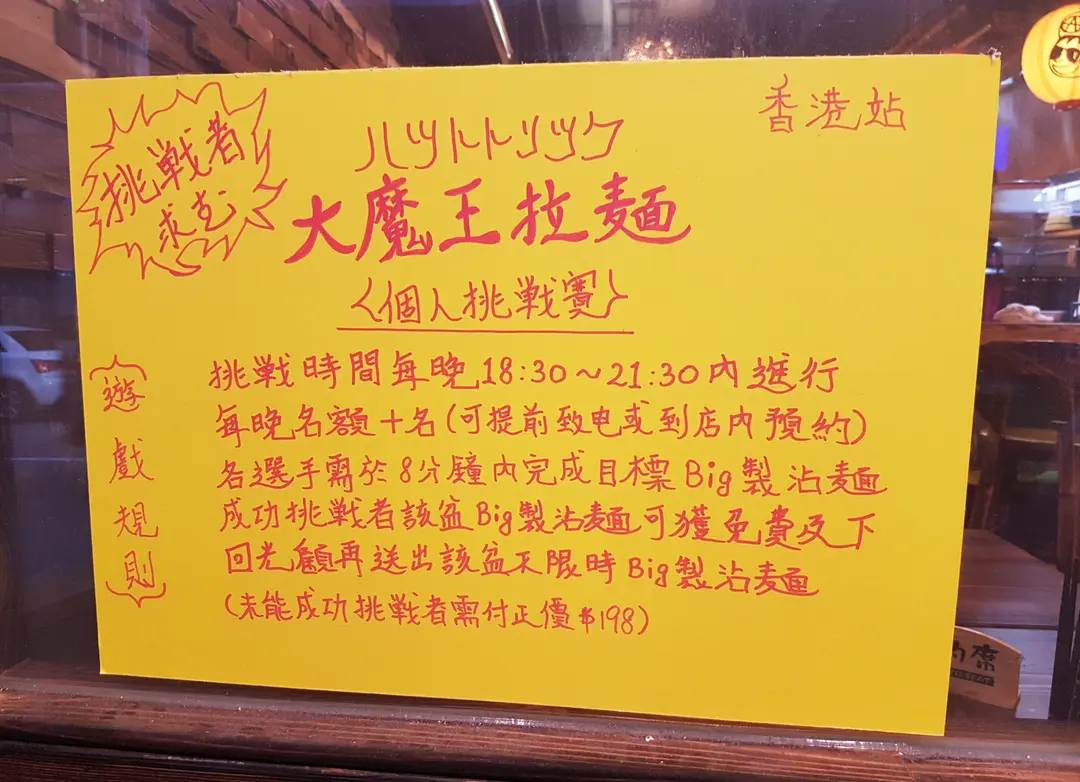 挑戦者
求む
香港站
ハットトリック
大魔王拉麺
〈個人挑戦賽〉
遊戲規則
挑戦時間每晚18:30～21:30內進行
每晚名額十名(可提前致电或到店内預約)
各選手需於8分鐘內完成目標Big製沾麺
成功挑戦者該盆Big製沾麺可獲免費及下
回光顧再送出該盆不限時Big製沾麺
(未能成功挑戦者需付正價$198)
席